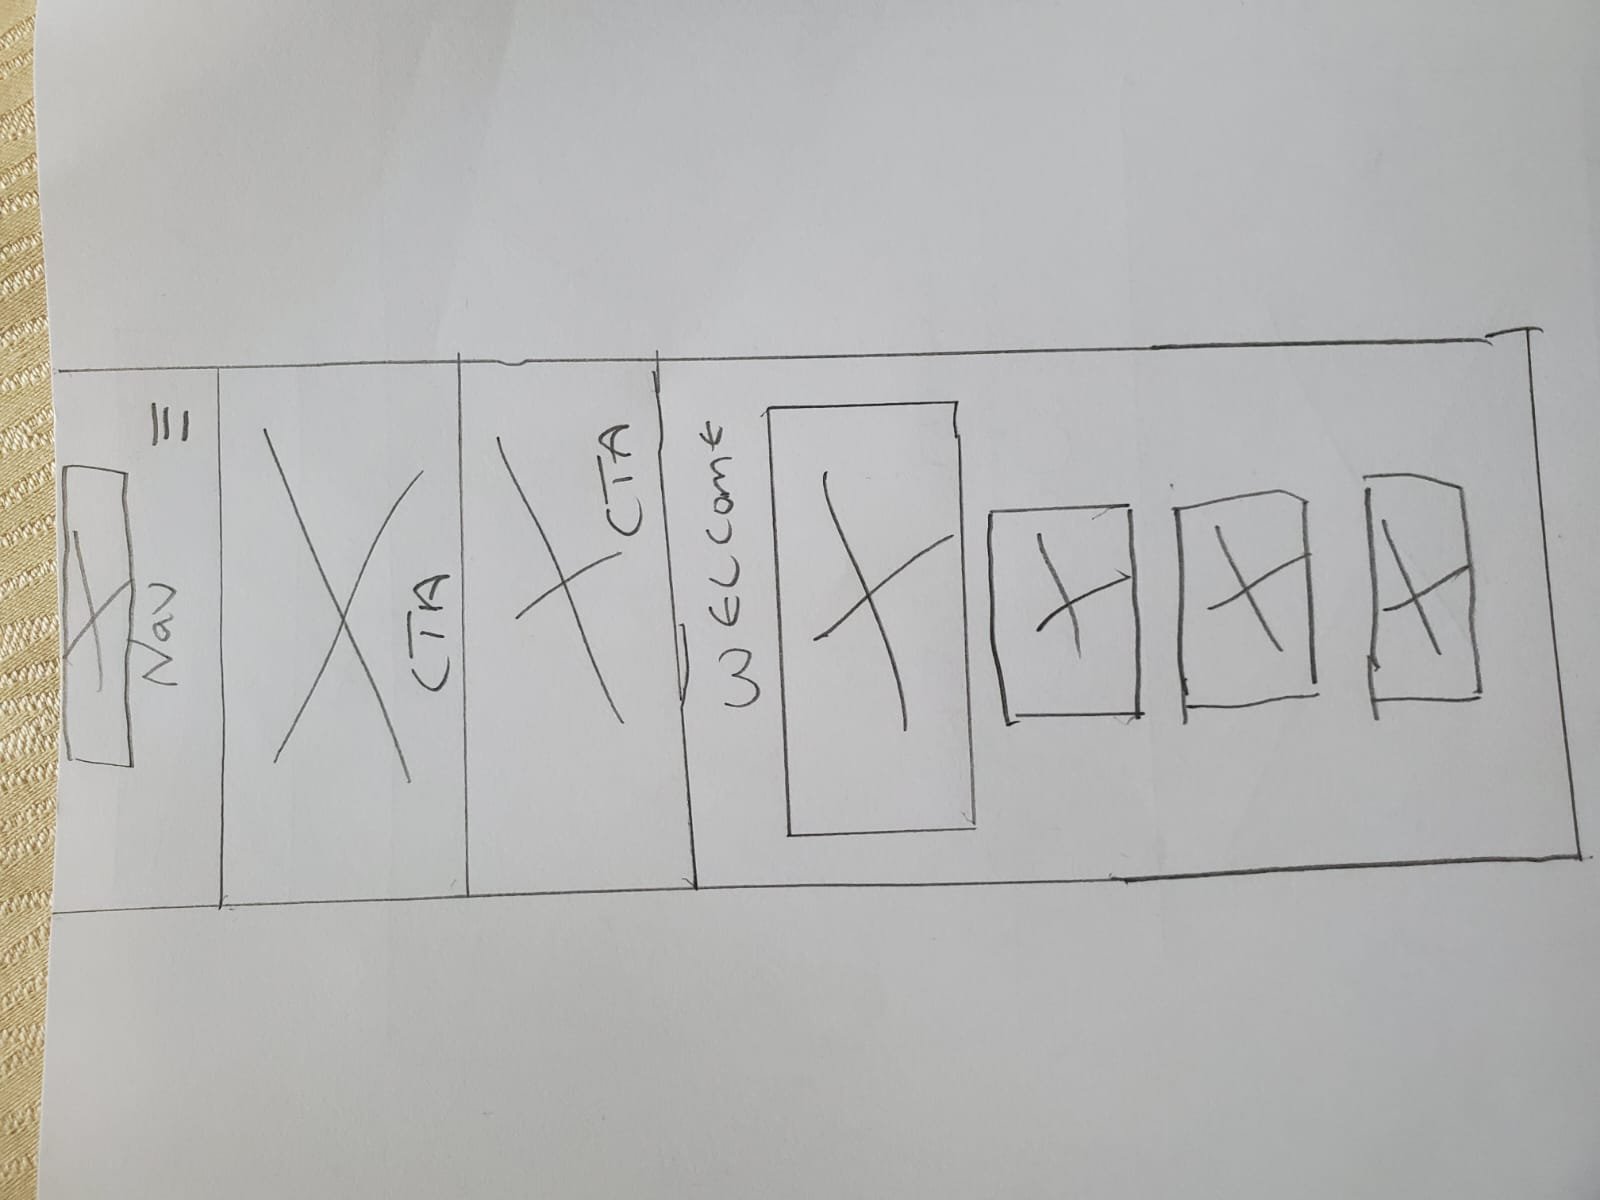 Nav
CTA
CTA
WELCOME